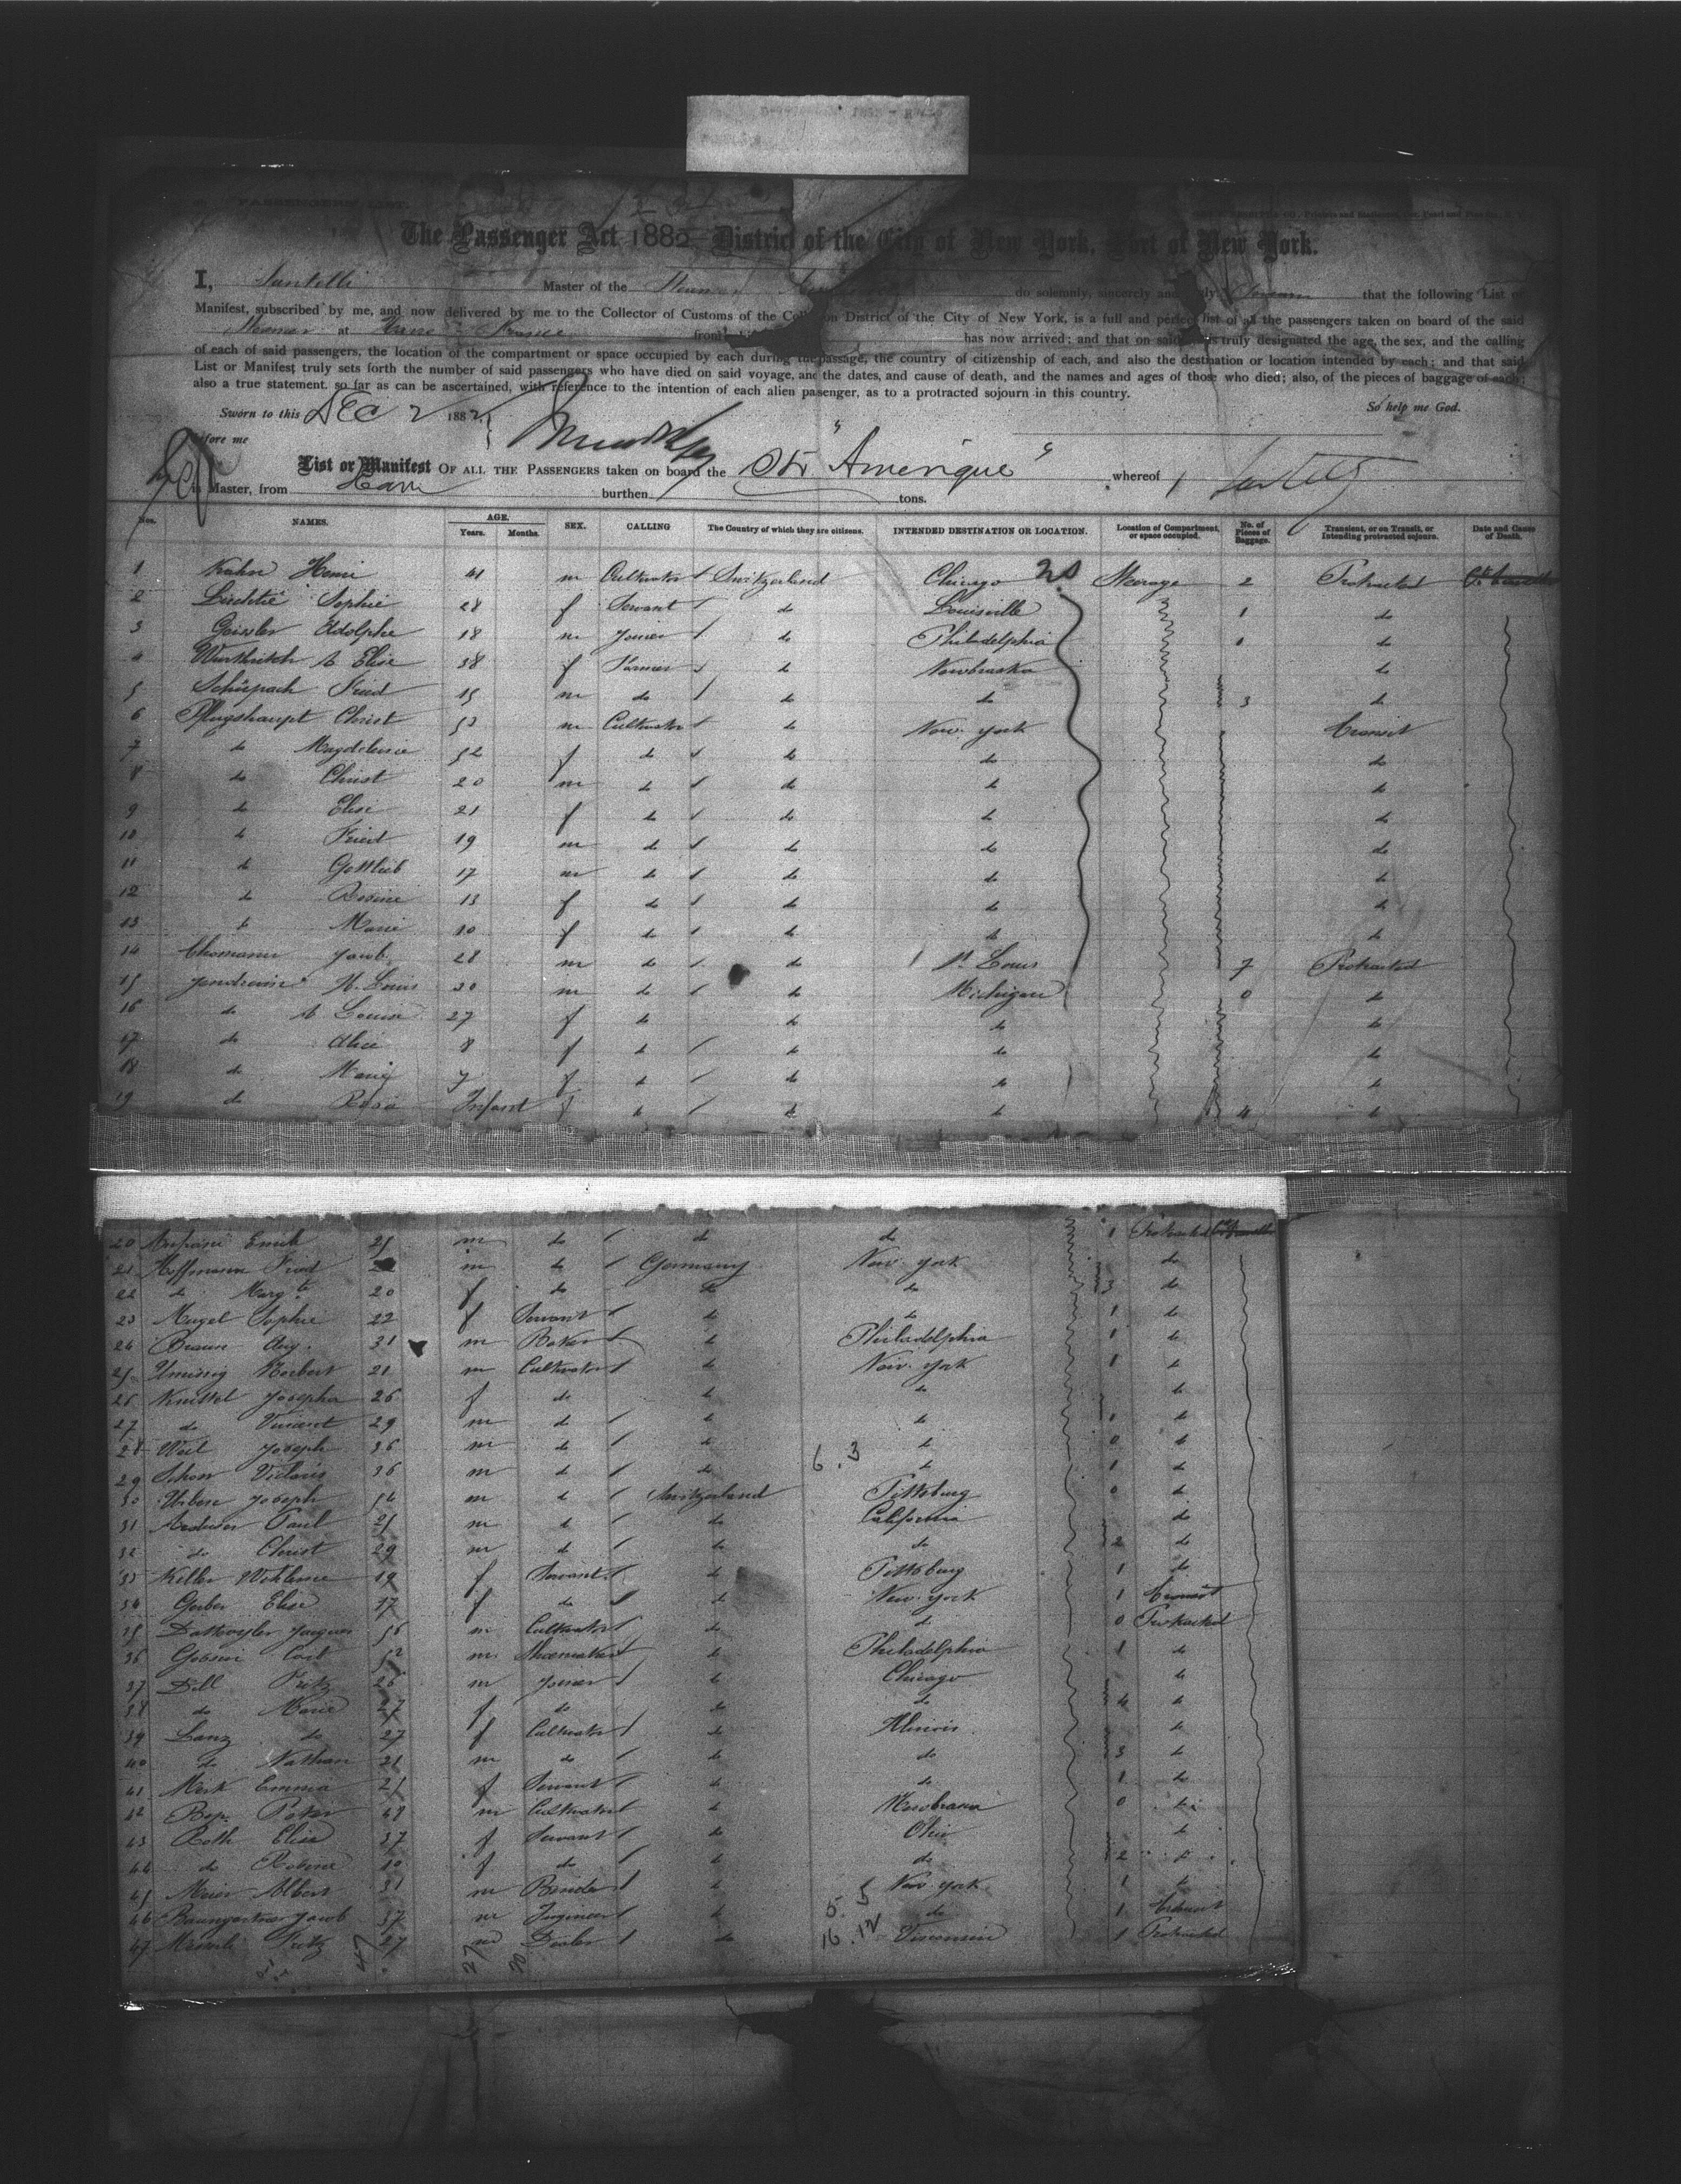 PASSENGERS' LIST.
The Passenger Act 1882 District of the City of New York, Port of New York.
I, Santelli Master of the Steamer do solemnly, sincerely and truly Swear that the following List or
Manifest, subscribed by me, and now delivered by me to the Collector of Customs of the Collection District of the City of New York, is a full and perfect list of all the passengers taken on board of the said
Steamer at Havre France from which has now arrived; and that on said list is truly designated the age, the sex, and the calling
of each of said passengers, the location of the compartment or space occupied by each during the passage, the country of citizenship of each, and also the destination or location intended by each; and that said
List or Manifest truly sets forth the number of said passengers who have died on said voyage, and the dates, and cause of death, and the names and ages of those who died; also, of the pieces of baggage of each;
also a true statement, so far as can be ascertained, with reference to the intention of each alien pasenger, as to a protracted sojourn in this country.
Sworn to this DEC 2 1882 So help me God.
before me
List or Manifest OF ALL THE PASSENGERS taken on board the Str "Amerique" whereof Santelli
is Master, from Havre burthen tons.
Nos. NAMES. AGE. Years. Months. SEX. CALLING The Country of which they are citizens. INTENDED DESTINATION OR LOCATION. Location of Compartment, or space occupied. No. of Pieces of Baggage. Transient, or on Transit, or Intending protracted sojourn. Date and Cause of Death.
1 Kuhn Henri 41 m Cultivator Switzerland Chicago 20 Steerage 2 Protracted
2 Liechtie Sophie 28 f Servant do Louisville 1 do
3 Geissler Adolphe 18 m Joiner do Philadelphia 1 do
4 Elise 38 f Farmer do Newbraska do
5 Schüpach Fried 15 m do do do 3 do
6 Pflugshaupt Christ 53 m Cultivator do New-york Transit
7 do Magdelenie 52 f do do do do
8 do Christ 20 m do do do do
9 do Elise 21 f do do do do
10 do Fried 19 m do do do do
11 do Gottlieb 17 m do do do do
12 do Rosine 13 f do do do do
13 do Marie 10 f do do do do
14 Thomann Jacob 28 m do do St Louis 7 Protracted
15 H. Louis 30 m do do Michigan 0 do
16 do Louise 27 f do do do do
17 do Alice 8 f do do do do
18 do Marie 7 f do do do do
19 do Rosa Infant f do do do 4 do
20 Emile 25 m do do do 1 Protracted
21 Hoffmann Fried m do Germany New york do
22 do Margte 20 f do do do 3 do
23 Nagel Sophie 22 f Servant do do 1 do
24 Braun Aug. 31 m Baker do Philadelphia 1 do
25 Herbert 21 m Cultivator do New-york 1 do
26 Knittel Josepha 26 f do do do do
27 do Vincent 29 m do do do 0 do
28 Weil Joseph 36 m do do 6.3 do 0 do
29 Schon 36 m do do do 1 do
30 Joseph 54 m do Switzerland Pittsburg 0 do
31 Paul 25 m do do California do
32 do Christ 29 m do do do 2 do
33 Keller 19 f Servant do Pittsburg 1 do
34 Gerber Elise 37 f do do New-york 1 Transit
35 Dattwyler Jacques 56 m Cultivator do do 0 Protracted
36 52 m Shoemaker do Philadelphia 1 do
37 Dill Fritz 26 m Joiner do Chicago do
38 do Marie 27 f do do do 4 do
39 Lanz do 27 f Cultivator do Illinois do
40 do Nathan 21 m do do do 3 do
41 Merk Emma 25 f Servant do do 1 do
42 Peter 48 m Cultivator do 0 do
43 Roth Elise 37 f Servant do Ohio do
44 do 10 f do do do 2 do
45 Meier Albert 31 m Binder do 5.5 New york 1 do
46 Baumgartner Jacob 37 m Ingineer do do 1 Transit
47 Fritz 27 m Dealer do 16.12 Visconsin 1 Protracted
47 27 20